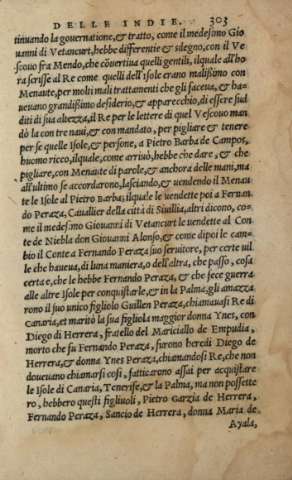 DELLE INDIE. 303
tinuando la gouernatione, & tratto, come il medesimo Gio
uanni di Vetancurt, hebbe differentie & sdegno, con il Ve
scouo fra Mendo, che cōuertiua quelli gentili, ilquale all'ho
ra scrisse al Re come quelli dell'Isole erano malissimo con
Menaute, per molti mali trattamenti che gli faceua, & ha-
ueuano grandissimo desiderio, & apparecchio, di essere sud
diti di sua altezza, il Re per le lettere di quel Vescouo man
dò la con tre naui, & con mandato, per pigliare & tenere
per se quelle Isole, & persone, a Pietro Barba de Campos,
huomo ricco, ilquale, come arriuò, hebbe che dare, & che
pigliare, con Menaute di parole, & anchora delle mani, ma
all'ultimo se accordarono, lasciando, & uendendo il Menau
te le Isole al Pietro Barba, ilquale le uendette poi a Fernan
do Peraza, Caualier della città di Siuilia, altri dicono, co-
me il medesimo Giouanni di Vetancurt le uendette al Con
te de Niebla don Giouanni Alonso, & come dipoi le cam-
bio il Conte a Fernando Peraza suo seruitore, per certe uil
le che haueua, di luna maniera, o dell'altra, che passò, cosa
certa e, che le hebbe Fernando Peraza, & che fece guerra
alle altre Isole per conquistarle, & in la Palma, gli amazza
rono il suo unico figliolo Guillen Peraza, chiamauasi Re di
Canaria, et maritò la sua figliola maggior donna Ynes, con
Diego di Herrera, fratello del Mariciallo de Empudia,
morto che fu Fernando Peraza, furono heredi Diego de
Herrera, & donna Ynes Peraza, chiamandosi Re, che non
doueuano chiamarsi cosi, fatticarono assai per acquistare
le Isole di Canaria, Tenerife, & la Palma, ma non possette
ro, hebbero questi figliuoli, Pietro Garzia de Herrera,
Fernando Peraza, Sancio de Herrera, donna Maria de
Ayala,